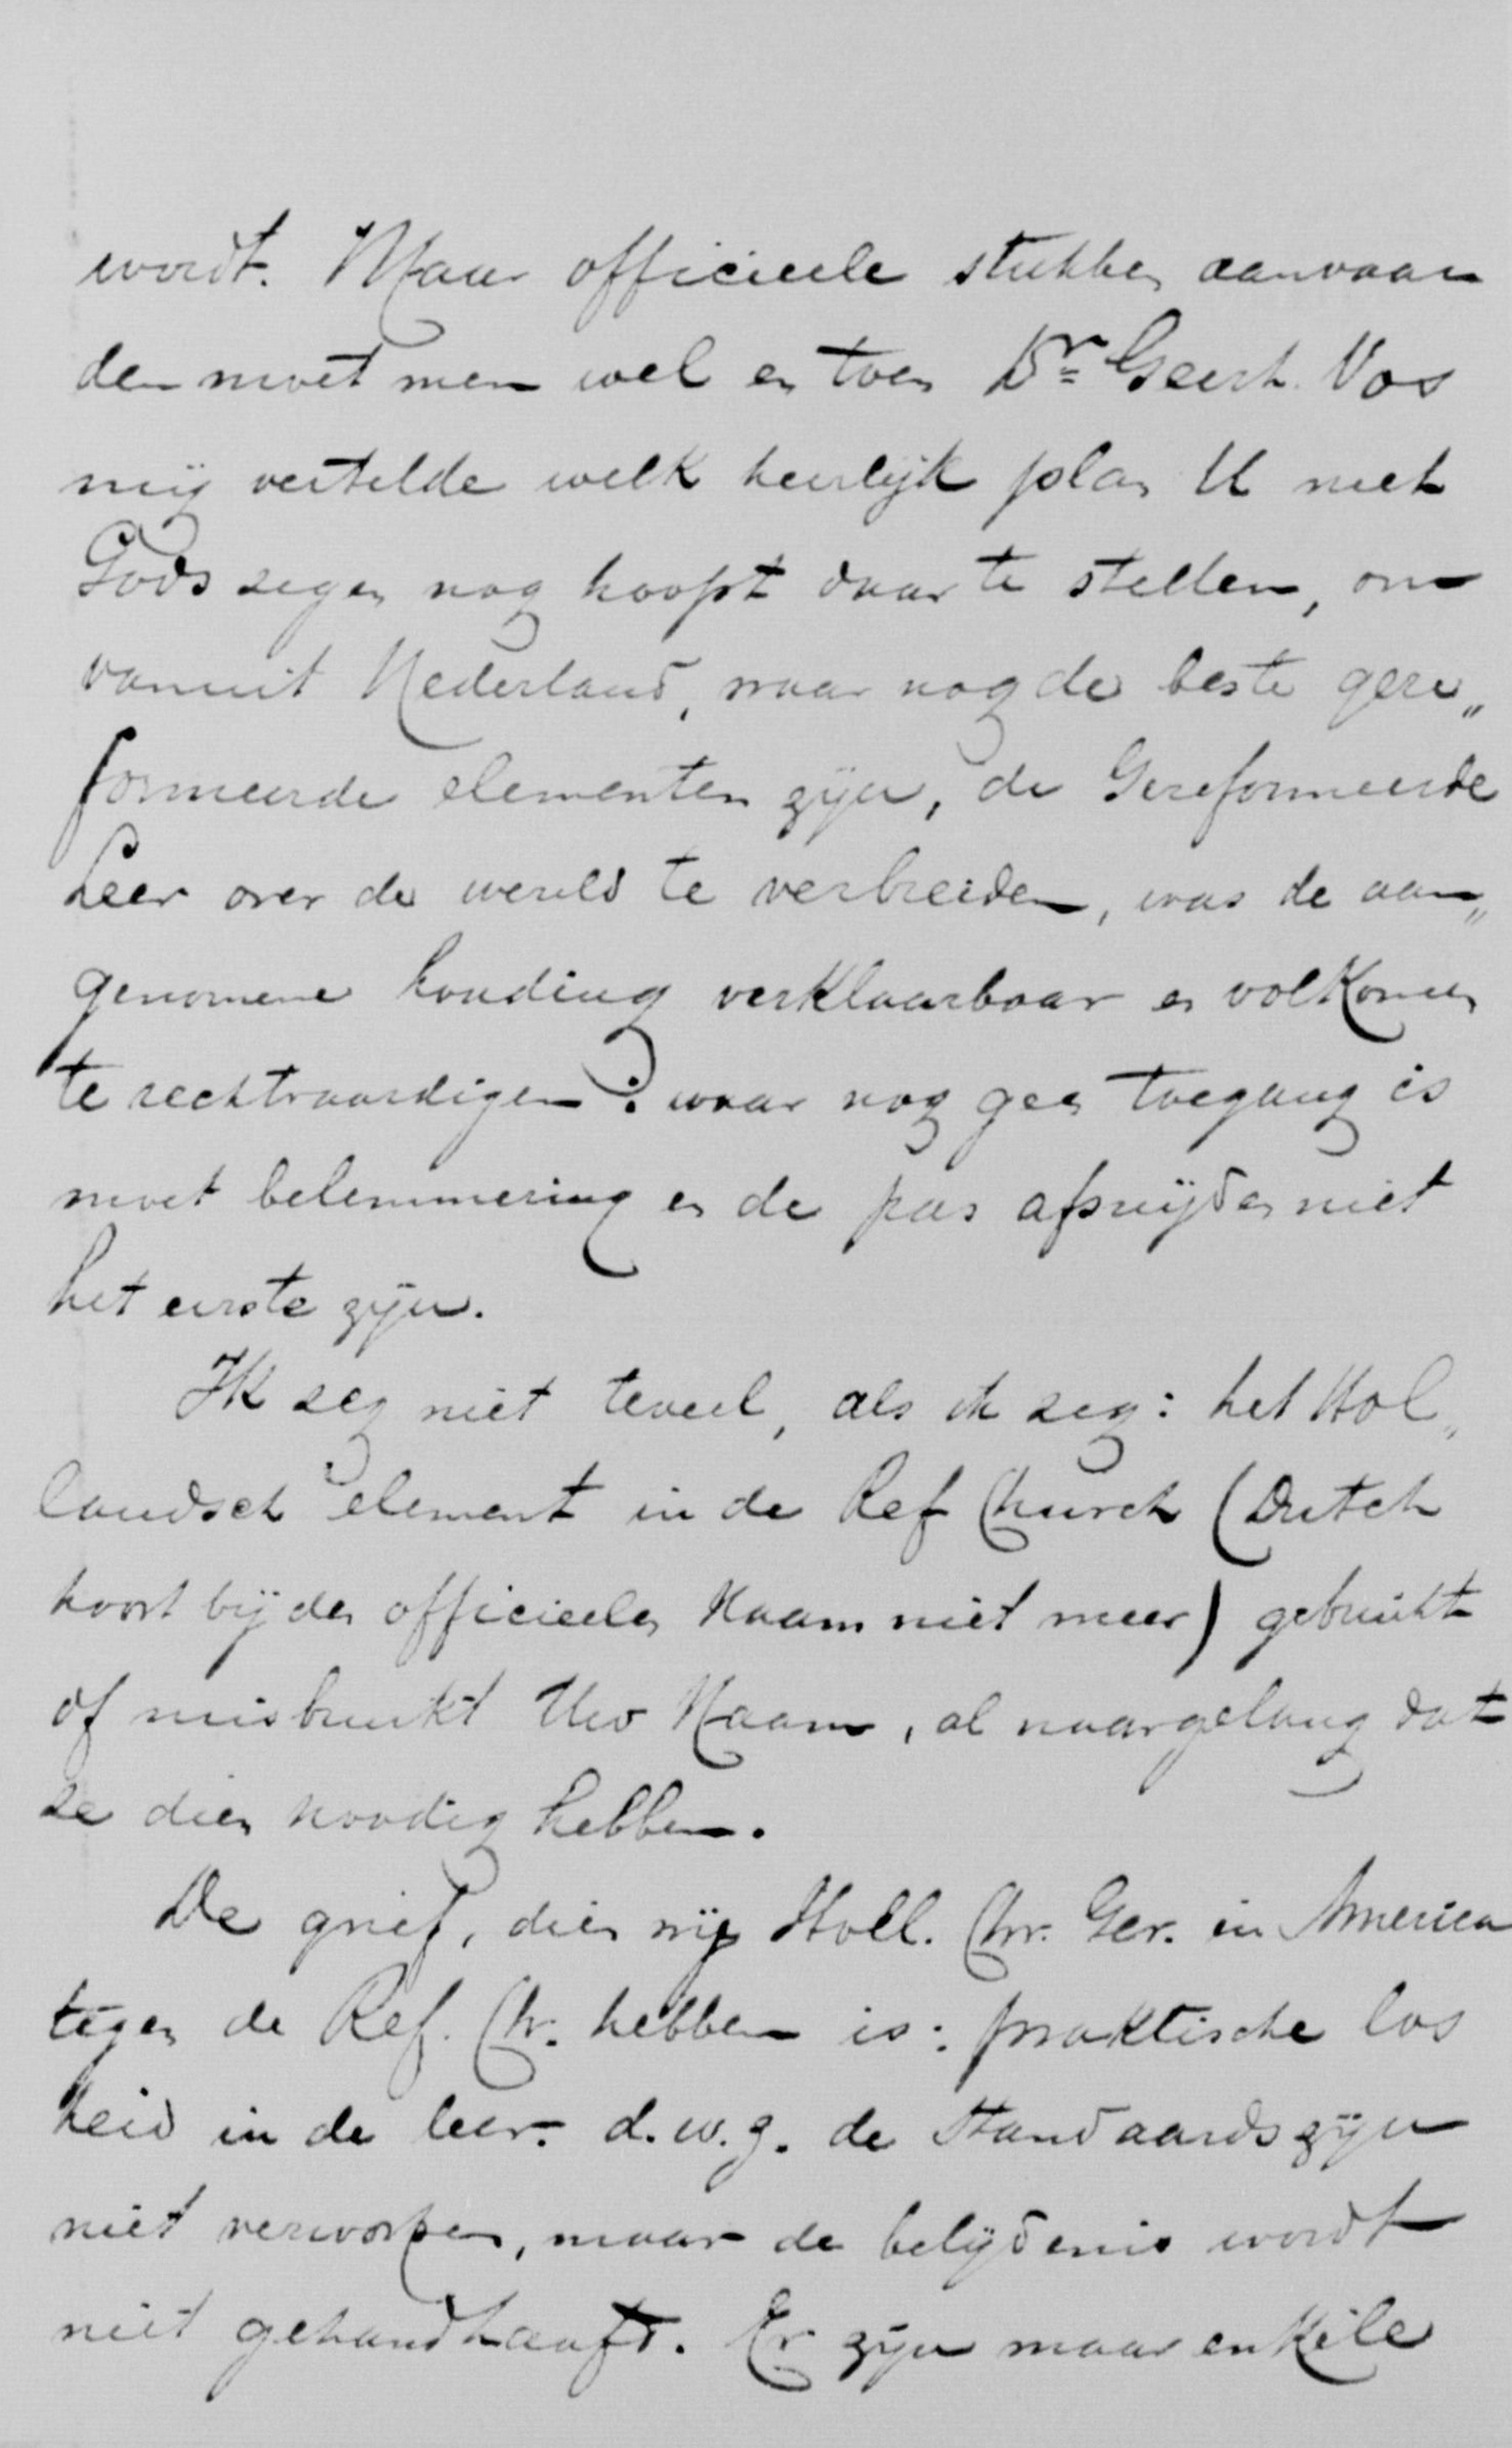 wordt. Maar officieele stukken aanvaar
den moet men wel en toen Dr Geerh. Vos
mij vertelde welk heerlijk plan U met
Gods zegen nog hoopt daar te stellen, om
vanuit Nederland, waar nog de beste gere„
formeerde elementen zijn, de Gereformeerde
Leer over de wereld te verbreiden, was de aan„
genomene houding verklaarbaar en volkomen
te rechtvaardigen: waar nog geen toegang is
moet belemmering en de pas afsnijden niet
het eerste zijn.
Ik zeg niet teveel, als ik zeg: het Hol„
landsch element in de Ref Church (Dutch
hoort bij den officieelen Naam niet meer) gebruikt
of misbruikt Uw Naam, al naargelang dat
ze dien noodig hebben.
De grief, dien wij Holl. Chr. Ger. in America
tegen de Ref. Ch. hebben is: praktische los
heid in de leer. d.w.z. de Standaards zijn
niet verworpen, maar de belijdenis wordt
niet gehandhaafd. Er zijn maar enkele